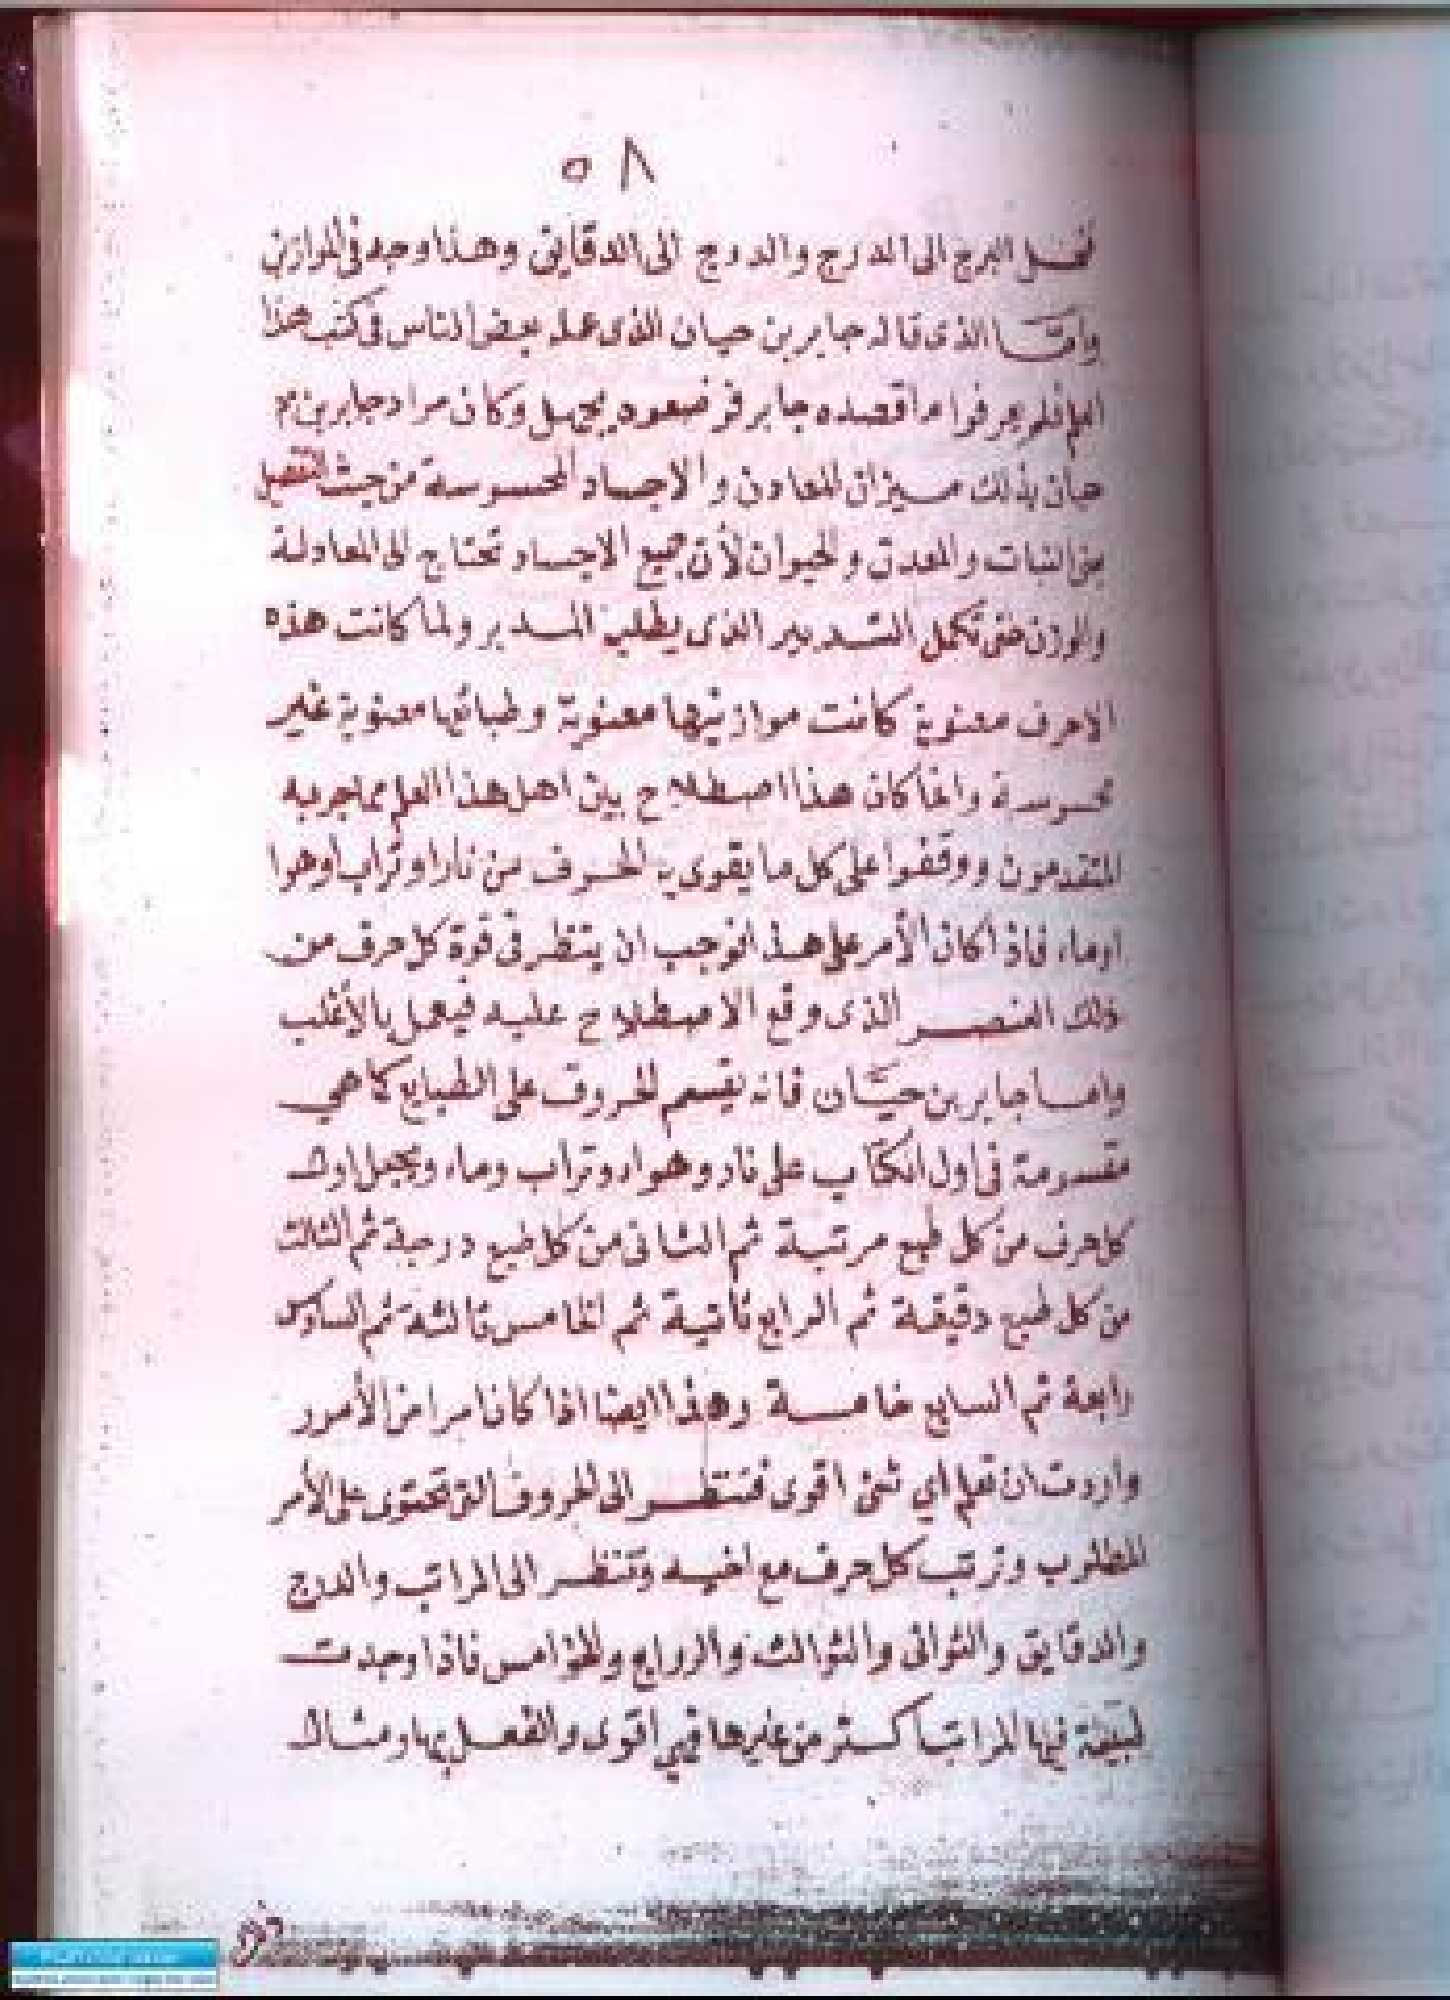 ٥٨
فحل البرج الى الدرج والدرج الى الدقايق وهذا وجه في الموازين
وامّا الذي قاله جابر بن حيان الذى عمله بعض الناس في كتب هذا
العلم فلم يعرفوا ما قصده جابر وكان مراد جابر بن
حيان بذلك ميزان المعادن والاجساد المحسوسة من حيث
من النبات والمعدن والحيوان لأن جميع الاجساد تحتاج الى المعادلة
والوزن حتى تكمل التدبير الذى يطلبه المدبر ولما كانت هذه
الاحرف معنوية كانت موازنيها معنوية وطبائعها معنوية غير
محسوسة وانما كان هذا اصطلاح بين اهل هذا العلم مما جربه
المتقدمون ووقفوا على كل ما يقوى به الحرف من نار او تراب او هوا
او ماء فاذا كان الأمر على هذا فوجب ان ينظر في قوة كل حرف من
ذلك العنصر الذى وقع الاصطلاح عليه فيعمل بالأغلب
واما جابر بن حيّان فانه يقسم الحروف على الطبايع كما هي
مقسومة في اول الكتاب على نار وهواء وتراب وماء ويجعل اول
كل حرف من كل طبع مرتبة ثم الثاني من كل طبع درجة ثم الثالث
من كل طبع دقيقة ثم الرابع ثانية ثم الخامس ثالثة ثم السادس
رابعة ثم السابع خامسة وهذا ايضا اذا كان امرا من الأمور
واردت ان تعلم اي شئ اقوى فتنظر الى الحروف التى تحتوى على الأمر
المطلوب وترتب كل حرف مع اخيه وتنظر الى المراتب والدرج
والدقايق والثوانى والثوالث والروابع والخوامس فاذا وجدت
فيها المراتب اكثر من غيرها فهي اقوى والفعل بها ومثال